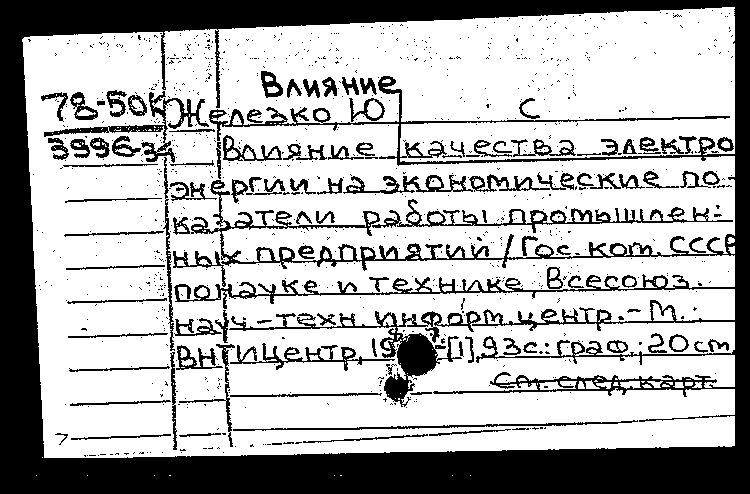 Влияние
78-50К Железко, Ю С
3996-34 Влияние качества электро
энергии на экономические по-
казатели работы промышлен-
ных предприятий / Гос. ком. СССР
по науке и технике, Всесоюз.
науч.-техн. информ. центр. - М.:
ВНТИЦентр, 19 -[1], 93с.: граф.; 20 см.
См. след. карт.